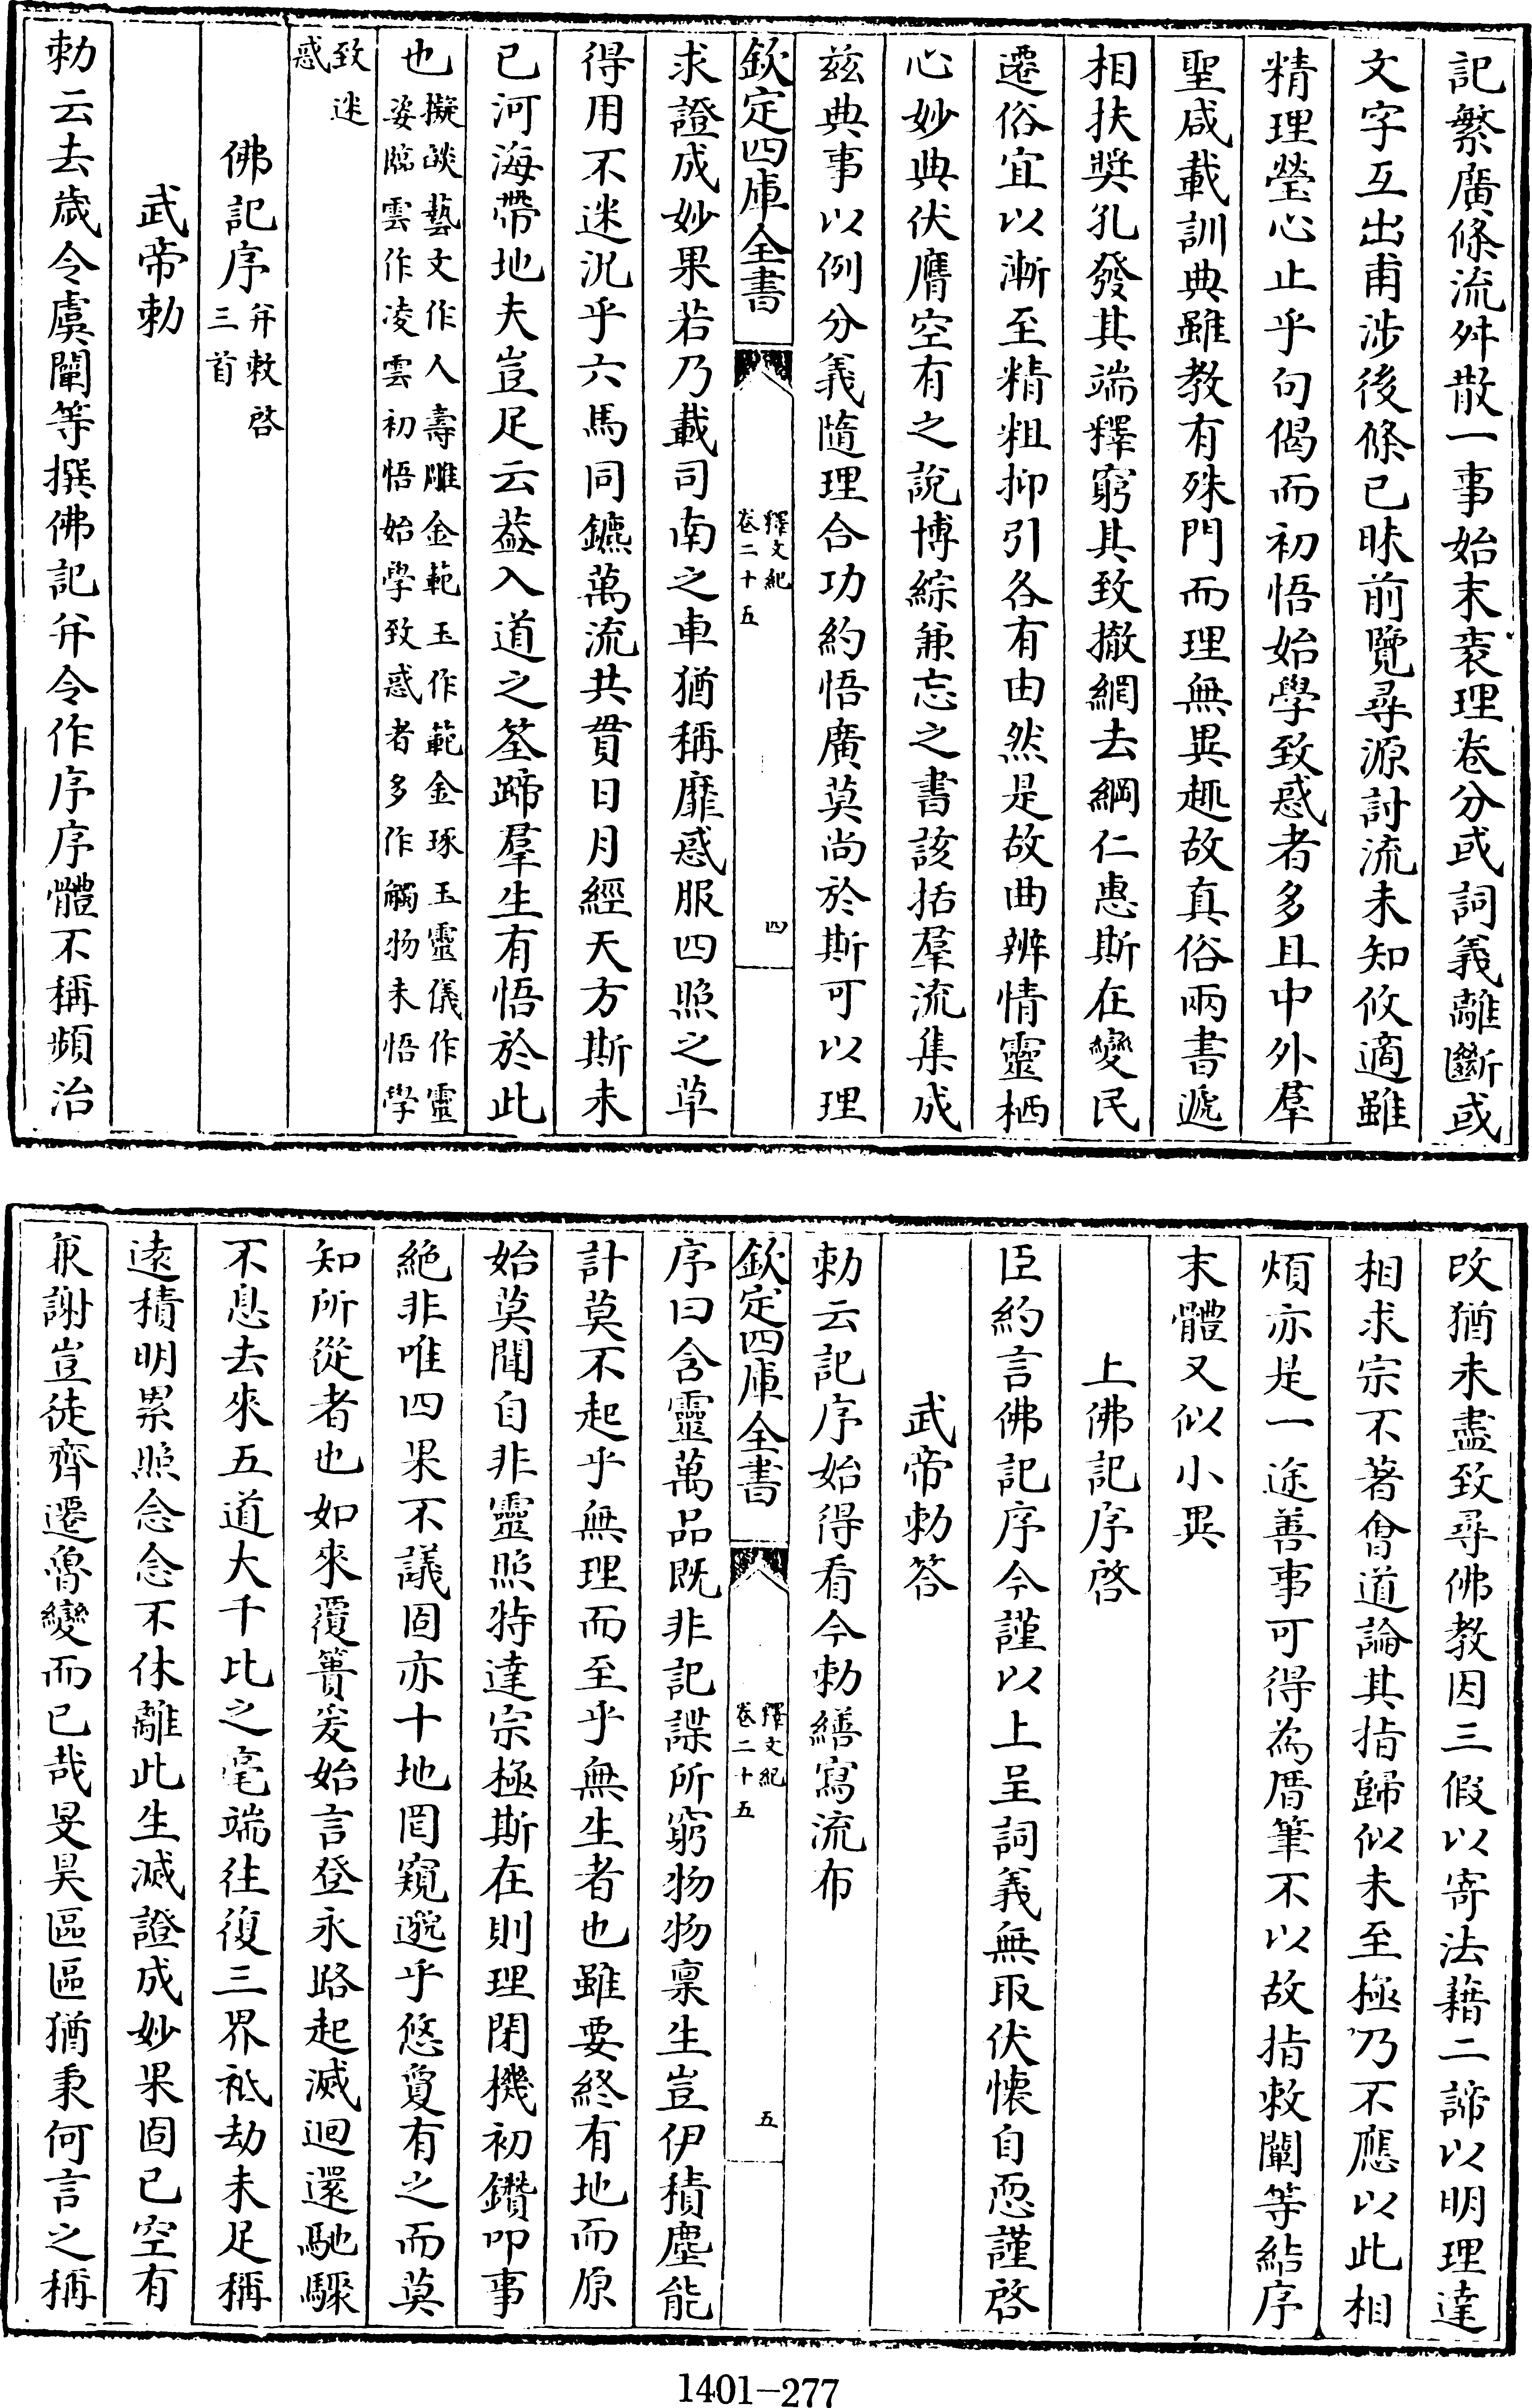 記繁廣條流舛散一事始末袠理卷分或詞義離斷或
文字互出甫涉後條已昧前覽尋源討流未知攸適雖
精理瑩心止乎句偈而初悟始學致惑者多且中外羣
聖咸載訓典雖教有殊門而理無異趣故真俗兩書遞
相扶奬孔發其端釋窮其致撤網去綱仁惠斯在變民
遷俗宜以漸至精粗抑引各有由然是故曲辨情靈栖
心妙典伏膺空有之說博綜兼忘之書該括羣流集成
兹典事以例分義隨理合功約悟廣莫尚於斯可以理
欽定四庫全書
釋文紀
卷二十五
四
求證成妙果若乃載司南之車猶稱靡惑服四照之草
得用不迷況乎六馬同鑣萬流共貫日月經天方斯未
已河海帶地夫豈足云葢入道之筌蹄羣生有悟於此
也擬談藝文作人壽雕金範玉作範金琢玉靈儀作靈
姿臨雲作凌雲初悟始學致惑者多作觸物未悟學
致迷
惑
佛記序并敕啓
三首
武帝勅
勅云去歲令虞闡等撰佛記并令作序序體不稱頻治
改猶未盡致尋佛教因三假以寄法藉二諦以明理達
相求宗不著會道論其指歸似未至極乃不應以此相
煩亦是一途善事可得為厝筆不以故指敕闡等結序
末體又似小異
上佛記序啓
臣約言佛記序今謹以上呈詞義無取伏懷自恧謹啓
武帝勅答
勅云記序始得看今勅繕寫流布
欽定四庫全書
釋文紀
卷二十五
五
序曰含靈萬品既非記諜所窮物物禀生豈伊積塵能
計莫不起乎無理而至乎無生者也雖要終有地而原
始莫聞自非靈照特達宗極斯在則理閉機初鑽叩事
絶非唯四果不議固亦十地罔窺邈乎悠敻有之而莫
知所從者也如來覆簣爰始言登永路起滅迴還馳驟
不息去來五道大千比之毫端往復三界祗劫未足稱
遠積明累照念念不休離此生滅證成妙果固已空有
兼謝豈徒齊遷魯變而已哉旻昊區區猶秉何言之稱
1401-277